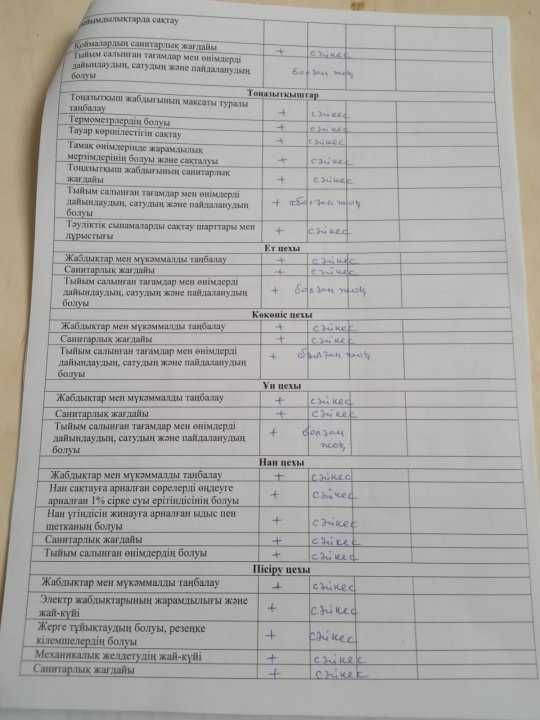 йымдылықтарда сақтау
Қоймалардың санитарлық жағдайы + сәйкес
Тыйым салынған тағамдар мен өнімдерді
дайындаудың, сатудың және пайдаланудың болған жоқ
болуы
Тоңазытқыштар
Тоңазытқыш жабдығының мақсаты туралы
таңбалау + сәйкес
Термометрлердің болуы + сәйкес
Тауар көршілестігін сақтау + сәйкес
Тамақ өнімдерінде жарамдылық
мерзімдерінің болуы және сақталуы + сәйкес
Тоңазытқыш жабдығының санитарлық
жағдайы + сәйкес
Тыйым салынған тағамдар мен өнімдерді
дайындаудың, сатудың және пайдаланудың + болған жоқ
болуы
Тәуліктік сынамаларды сақтау шарттары мен
дұрыстығы + сәйкес
Ет цехы
Жабдықтар мен мүкәммалды таңбалау + сәйкес
Санитарлық жағдайы + сәйкес
Тыйым салынған тағамдар мен өнімдерді
дайындаудың, сатудың және пайдаланудың + болған жоқ
болуы
Көкөніс цехы
Жабдықтар мен мүкәммалды таңбалау + сәйкес
Санитарлық жағдайы + сәйкес
Тыйым салынған тағамдар мен өнімдерді
дайындаудың, сатудың және пайдаланудың + болған жоқ
болуы
Ұн цехы
Жабдықтар мен мүкәммалды таңбалау + сәйкес
Санитарлық жағдайы + сәйкес
Тыйым салынған тағамдар мен өнімдерді
дайындаудың, сатудың және пайдаланудың + болған
болуы жоқ
Нан цехы
Жабдықтар мен мүкәммалды таңбалау + сәйкес
Нан сақтауға арналған сөрелерді өңдеуге
арналған 1% сірке суы ерітіндісінің болуы + сәйкес
Нан үгіндісін жинауға арналған ыдыс пен
щетканың болуы + сәйкес
Санитарлық жағдайы + сәйкес
Тыйым салынған өнімдердің болуы + сәйкес
Пісіру цехы
Жабдықтар мен мүкәммалды таңбалау + сәйкес
Электр жабдықтарының жарамдылығы және
жай-күйі + сәйкес
Жерге тұйықтаудың болуы, резеңке
кілемшелердің болуы + сәйкес
Механикалық желдетудің жай-күйі + сәйкес
Санитарлық жағдайы + сәйкес